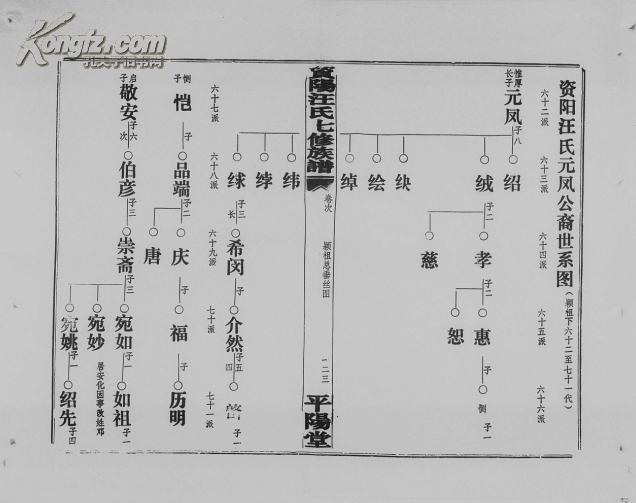 Kongfz.com
孔夫子旧书网
资阳汪氏元凤公裔世系图(颖祖下六十二至七十一代)
六十二派
六十三派
六十四派
六十五派
六十六派
惟厚
长子
元凤
子八
绍
绒
子二
孝
子二
惠
子
恕
慈
侧
子一
缺
绘
绰
纬
綍
绿
資陽汪氏七修族譜
卷次
颖祖总垂丝图
一二三
平陽堂
子三
长
希闵
子
介然
子五
四
子一
六十七派
六十八派
六十九派
七十派
七十一派
侧
子
恺
子
品端
子二
庆
子
福
子
历明
唐
启
子
敬安
子六
次
伯彦
子三
崇斋
子三
宛如
子一
如祖
子一
宛妙
居安化因事改姓邓
宛姚
子一
绍先
子四